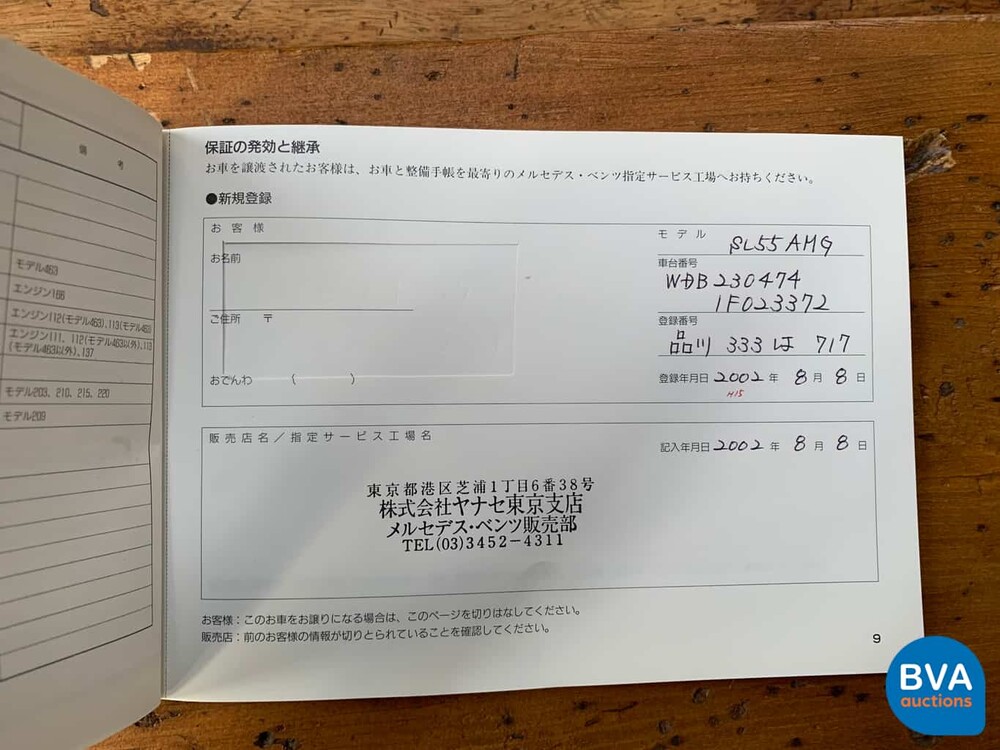 備 考
モデル463
エンジン166
エンジン112(モデル463)、113(モデル463)
エンジン111、112(モデル463以外)、113
(モデル463以外)、137
モデル203、210、215、220
モデル209
保証の発効と継承
お車を譲渡されたお客様は、お車と整備手帳を最寄りのメルセデス・ベンツ指定サービス工場へお持ちください。
●新規登録
お 客 様
お名前
ご住所 〒
おでんわ ( )
モ デ ル SL55 AMG
車台番号
WDB 230474
1F023372
登録番号
品川 333 は 717
登録年月日 2002 年 8 月 8 日
H15
販売店名/指定サービス工場名
記入年月日 2002 年 8 月 8 日
東京都港区芝浦1丁目6番38号
株式会社ヤナセ東京支店
メルセデス・ベンツ販売部
TEL(03)3452-4311
お客様:このお車をお譲りになる場合は、このページを切りはなしてください。
販売店:前のお客様の情報が切りとられていることを確認してください。
9
BVA
auctions